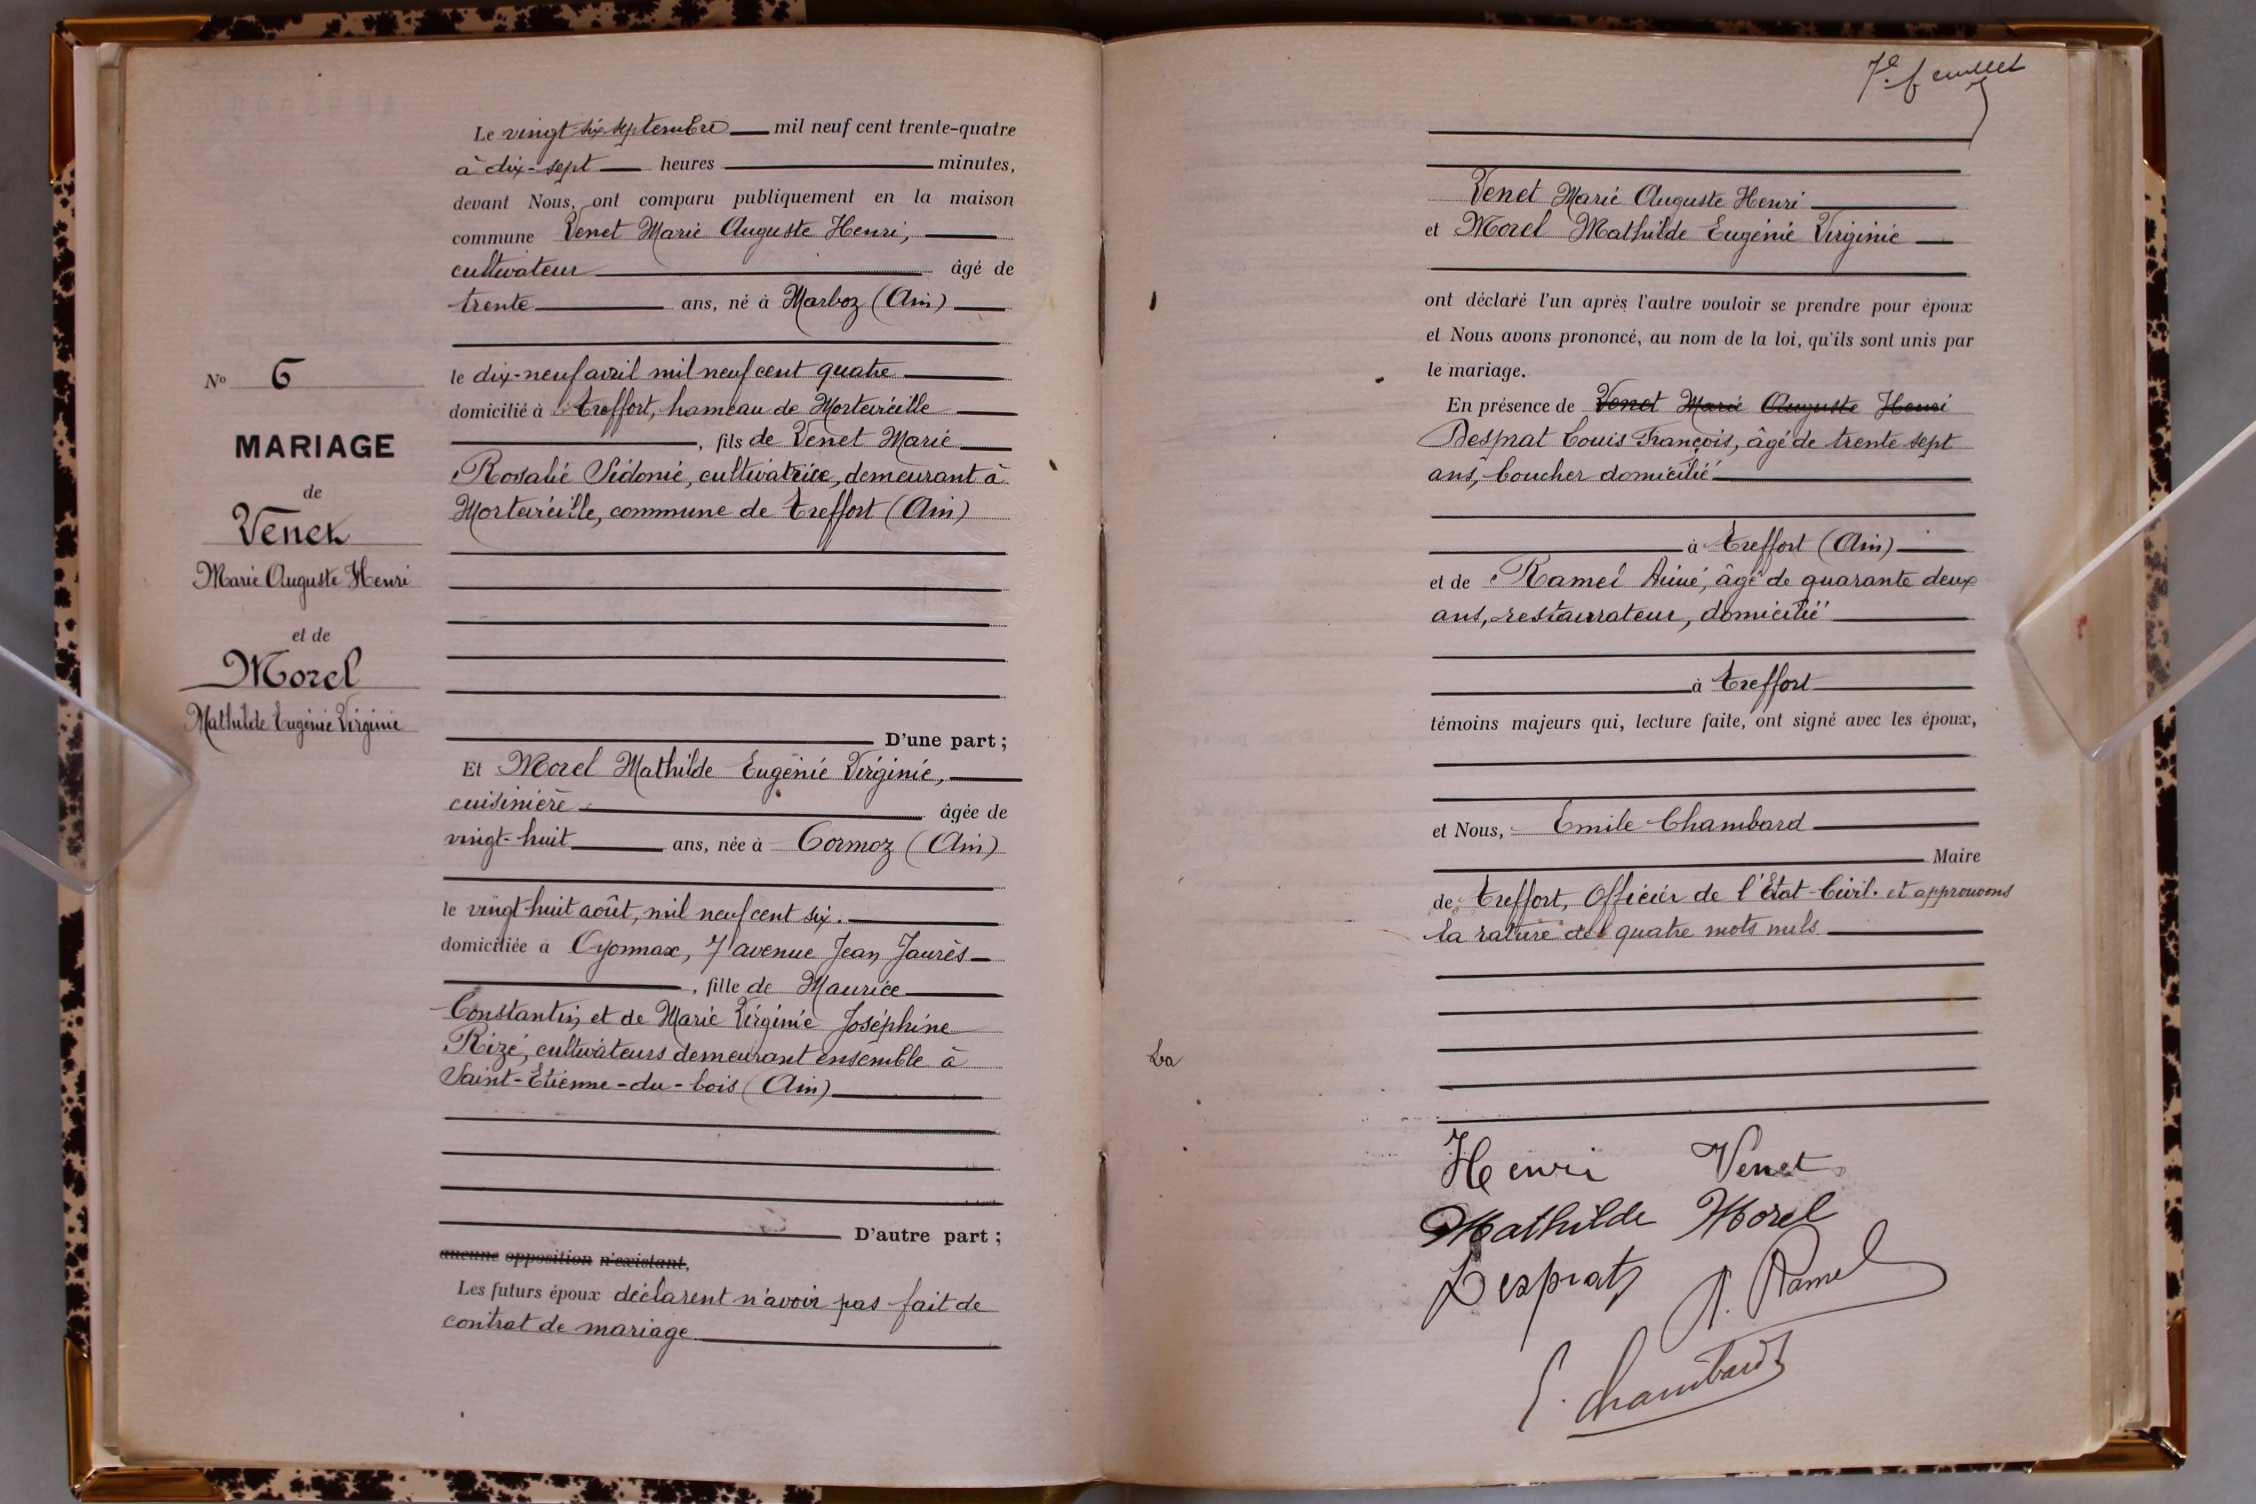 Le vingt six septembre mil neuf cent trente-quatre
à dix-sept heures minutes,
devant Nous, ont comparu publiquement en la maison
commune Venet Marie Auguste Henri,
cultivateur âgé de
trente ans, né à Marboz (Ain)
le dix-neuf avril mil neuf cent quatre
domicilié à Treffort, hameau de Morteiréille
, fils de Venet Marie
Rosalie Sidonie, cultivatrice, demeurant à
Morteiréille, commune de Treffort (Ain)
D'une part ;
Et Morel Mathilde Eugénie Virginie,
cuisinière âgée de
vingt-huit ans, née à Cormoz (Ain)
le vingt-huit août, mil neuf cent six.
domiciliée à Oyonnax, 7 avenue Jean Jaurès
, fille de Maurice
Constantin et de Marie Virginie Joséphine
Rizé, cultivateurs demeurant ensemble à
Saint-Etienne-du-bois (Ain)
D'autre part ;
aucune opposition n'existant,
Les futurs époux déclarent n'avoir pas fait de
contrat de mariage
No 6
MARIAGE
de
Venet
Marie Auguste Henri
et de
Morel
Mathilde Eugénie Virginie
7e feuillet
Venet Marie Auguste Henri
et Morel Mathilde Eugénie Virginie
ont déclaré l'un après l'autre vouloir se prendre pour époux
et Nous avons prononcé, au nom de la loi, qu'ils sont unis par
le mariage.
En présence de Venet Marie Auguste Henri
Desprat Louis François, âgé de trente sept
ans, boucher domicilié
à Treffort (Ain)
et de Ramel Aimé, âgé de quarante deux
ans, restaurateur, domicilié
à Treffort
témoins majeurs qui, lecture faite, ont signé avec les époux,
et Nous, Emile Chambard
Maire
de Treffort, Officier de l'Etat-Civil. et approuvons
la rature des quatre mots nuls
La
Henri Venet
Mathilde Morel
Desprat
A. Ramel
E. Chambard